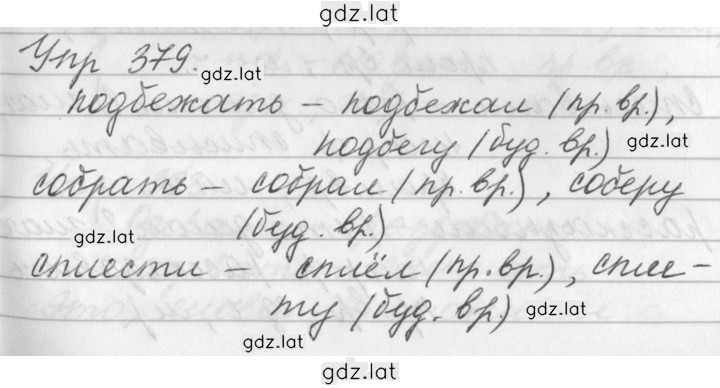 gdz.lat
Упр 379.
gdz.lat
подбежать – подбежал (пр. вр.),
подбегу (буд. вр.) gdz.lat
собрать – собрал (пр. вр.), соберу
gdz.lat (буд. вр.)
сплести – сплёл (пр. вр.), спле-
ту (буд. вр.) gdz.lat
gdz.lat
gdz.lat